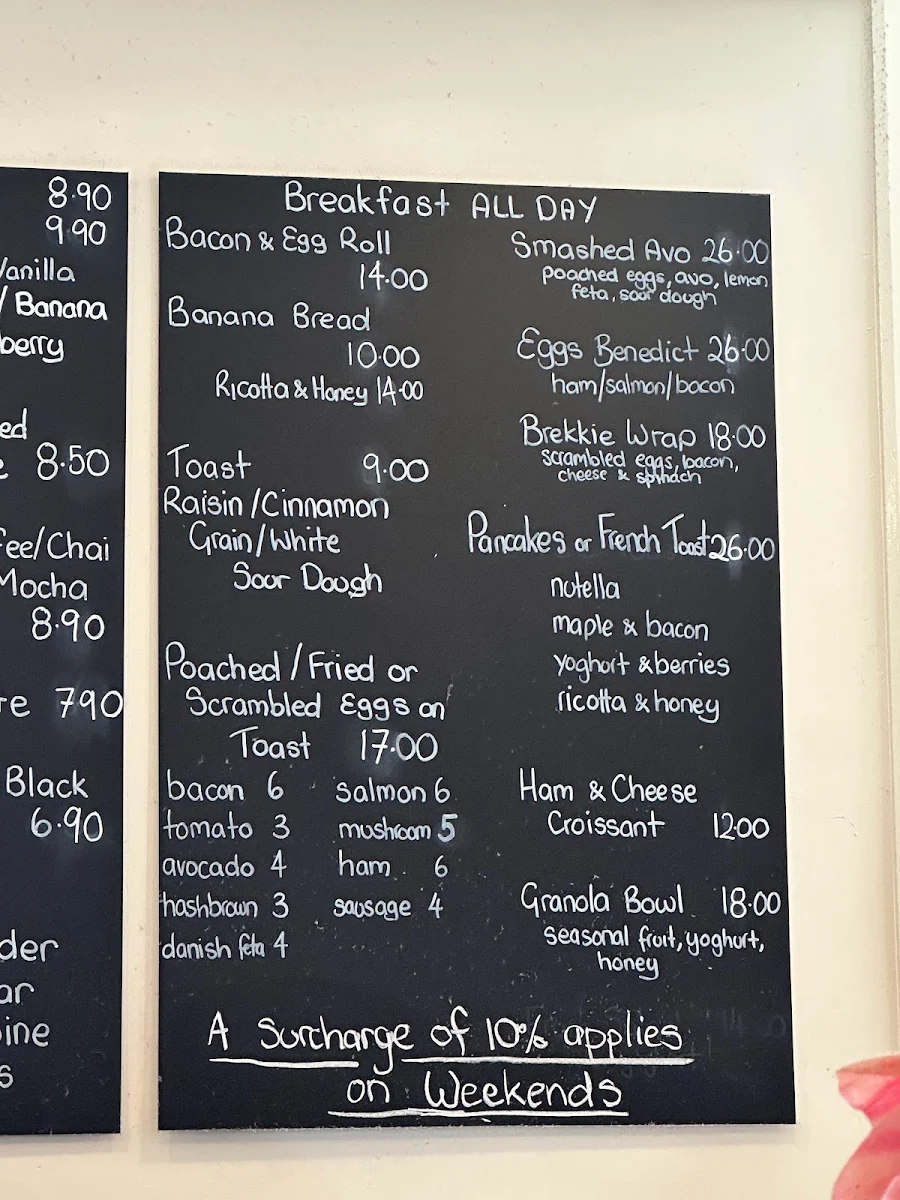 8.90
9.90
Vanilla
/ Banana
berry
ed
8.50
fee/Chai
Mocha
8.90
re 7.90
Black
6.90
der
ar
ine
s
Breakfast ALL DAY
Bacon & Egg Roll
14.00
Banana Bread
10.00
Ricotta & Honey 14.00
Toast 9.00
Raisin/Cinnamon
Grain/White
Sour Dough
Poached/Fried or
Scrambled Eggs on
Toast 17.00
bacon 6 salmon 6
tomato 3 mushroom 5
avocado 4 ham 6
hashbrown 3 sausage 4
danish feta 4
Smashed Avo 26.00
poached eggs, avo, lemon
feta, sour dough
Eggs Benedict 26.00
ham/salmon/bacon
Brekkie Wrap 18.00
scrambled eggs, bacon,
cheese & spinach
Pancakes or French Toast 26.00
nutella
maple & bacon
yoghurt & berries
ricotta & honey
Ham & Cheese
Croissant 12.00
Granola Bowl 18.00
seasonal fruit, yoghurt,
honey
A Surcharge of 10% applies
on Weekends